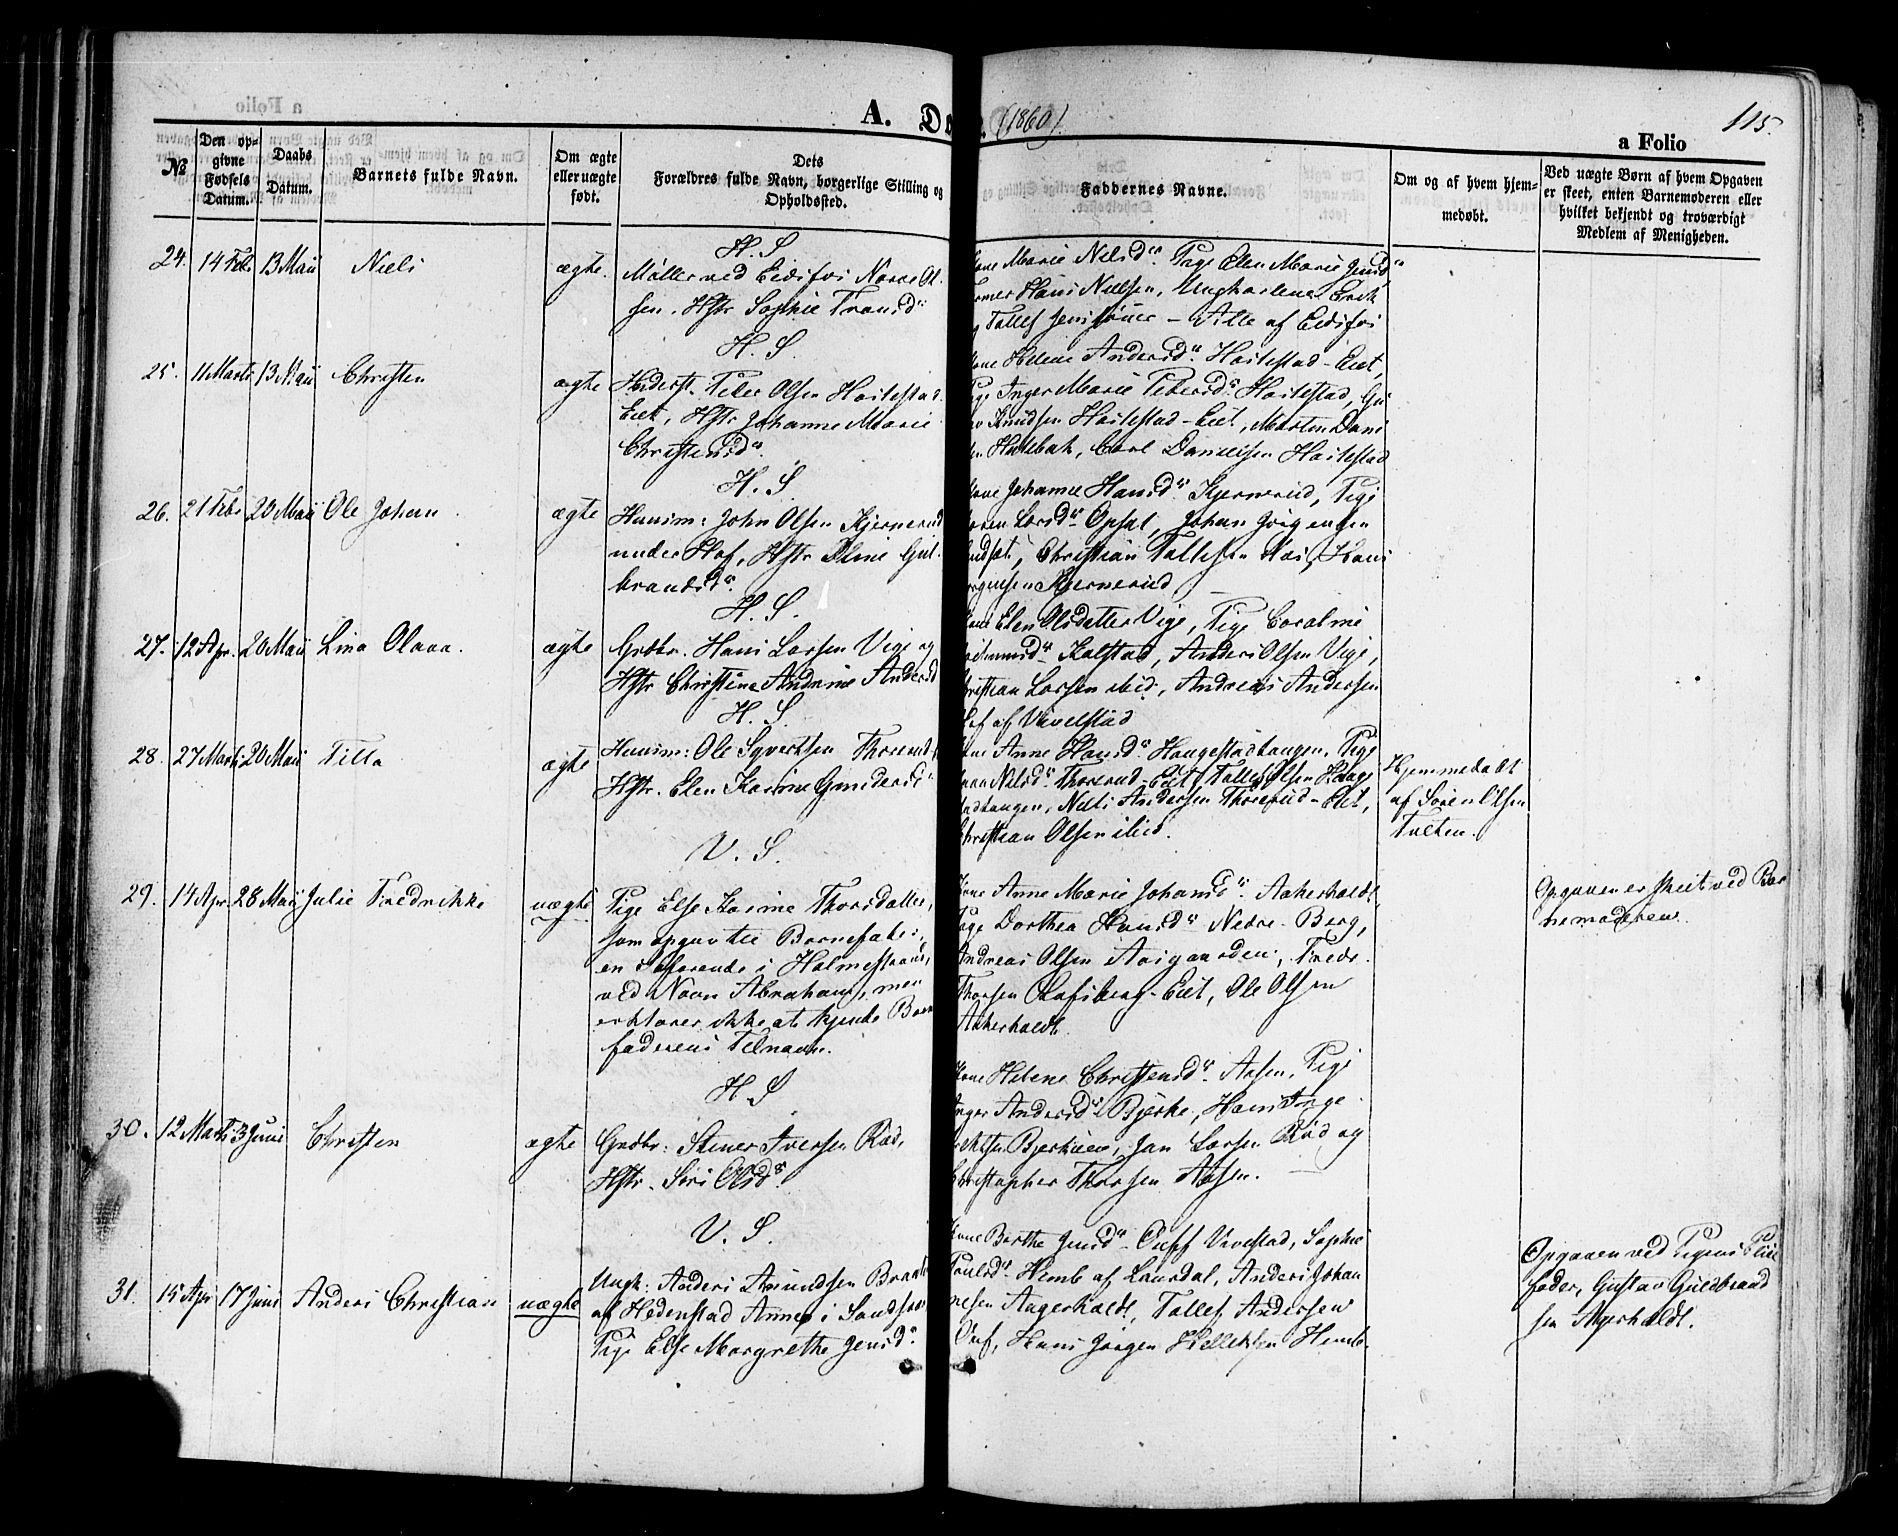 A. D (1860)
a Folio 115.
№
Den op-
givne
Fødsels
Datum.
Daabs
Datum.
Barnets fulde Navn.
Om ægte
eller uægte
født.
Dets
Forældres fulde Navn, borgerlige Stilling og
Opholdssted.
Faddernes Navne.
Om og af hvem hjem-
medøbt.
Ved uægte Børn af hvem Opgaven
er skeet, enten Barnemoderen eller
hvilket bekjendt og troværdigt
Medlem af Menigheden.
H. S
24. 14 Feb. 13 Mai Niels ægte.
Møller ved Eidsfos Narve Ol-
sen, Hstr Sophie
Marie Nilsdr. Pige Elen Marie
Hans Nielsen, Ungkarlene
Tallef Jens – Alle af Eidsfos
H. S.
25. 11 Marts 13 Mai Christen ægte
Peder Olsen Hailestad
Eiet, Hstr Johanne Marie
Christensdr.
Helene Andersdr. Hailestad-Eiet,
Inger Marie Pedersdr Hailestad,
Knudsen Hailestad-Eiet, Morten Dani
Carl Danielsen Hailestad
H. S.
26. 21 Feb. 20 Mai Ole Johan ægte
Huusm: John Olsen Kjernerud
under Hof, Hstr Oline Gul-
brandsdr.
Johanne Hansdr Kjernerud, Pige
Maren Larsdr Opsal, Johan Jørgensen
Christian Tallefsen Næs, Hans
Kjernerud
H. S.
27. 12 Apr. 20 Mai Lina Olava. ægte
Grdbr. Hans Larsen Vige og
Hstr Christine Andrine Andersd
Elen Olsdatter Vige, Pige Coraline
Kalstad, Anders Olsen Vige,
Christian Larsen ibid., Andreas Andersen
af Vivelstad
H. S.
28. 27 Marts 20 Mai Tilla ægte
Huusm: Ole Syvertsen Thorerud
Hstr. Elen Karine Gundersdr
Anne Hansdr Haugestadtangen, Pige
Nilsdr Thorerud-Eiet, Tallef Olsen Hauge
stadtangen, Niels Andersen Thorerud-Eiet,
Christian Olsen ibid.
Hjemmedøbt
af Søren Olsen
V. S.
29. 14 Apr. 28 Mai Julie Fredrikke uægte
Pige Else Karine Thorsdatter,
som opgav til Barnefader,
en Søfarende i Holmestrand,
ved Navn Abraham, men
erklærer ikke at kjende Barne
faderens Tilnavn.
Anne Marie Johansdr. Aakerholdt,
Pige Dorthea Hansdr Nedre-Berg,
Andreas Olsen Aasgaarden, Fredr.
Thorsen Olafsberg-Eiet, Ole Olsen
Aakerholdt.
Opgaven er skeet ved Bar
nemoderen.
H. S
30. 12 Marts 3 Juni Christen ægte
Grdbr: Stener Iversen Rød,
Hstr. Siri Olsdr.
Helene Christensdr. Aasen, Pige
Inger Andersdr Bjerke, Hans
Bjerkeeie, Jan Larsen Rød og
Christopher Thorsen Aasen.
V. S.
31. 15 Apr 17 Juni Anders Christian uægte
Ungk: Anders Amundsen Braate
af Hedenstad Annex i Sandsvær
Pige Else Margrethe Jensdr.
Kone Berthe Jensdr Vivestad, Sophie
Paulsdr Himb af Laurdal, Anders Johan
nesen Aagerholdt, Tallef Andersen
Hans Jørgen Helleksen Himb.
Opgaven ved Pigens Pleie
fader, Gustav Guldbrand
sen Agerholdt.